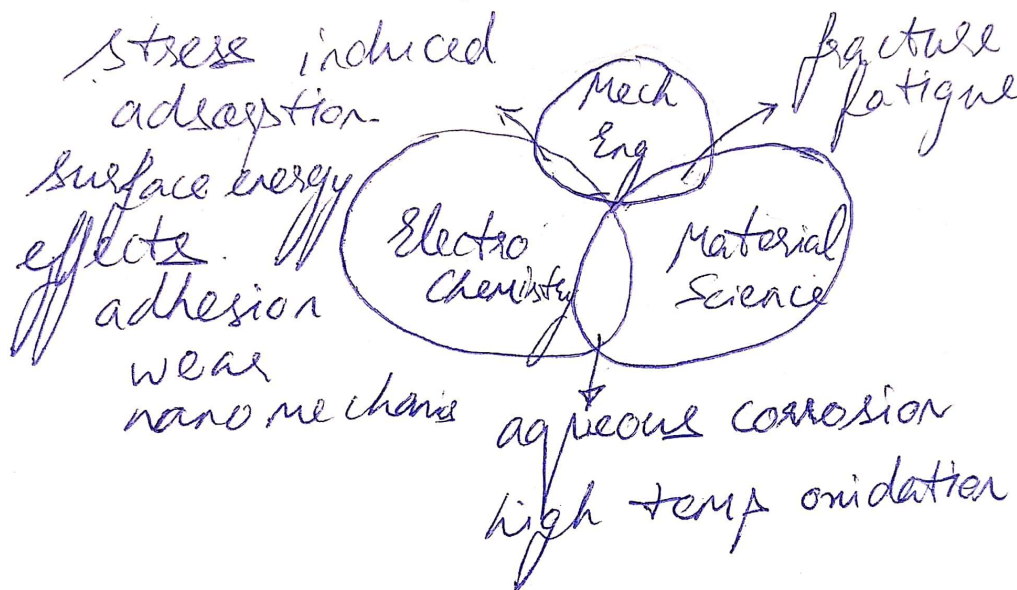 stress induced
adsorption
surface energy
effects
adhesion
wear
nano mechanis
Mech
Eng
fracture
fatigue
Electro
Chemistry
Material
Science
aqueous corrosion
high temp oxidation